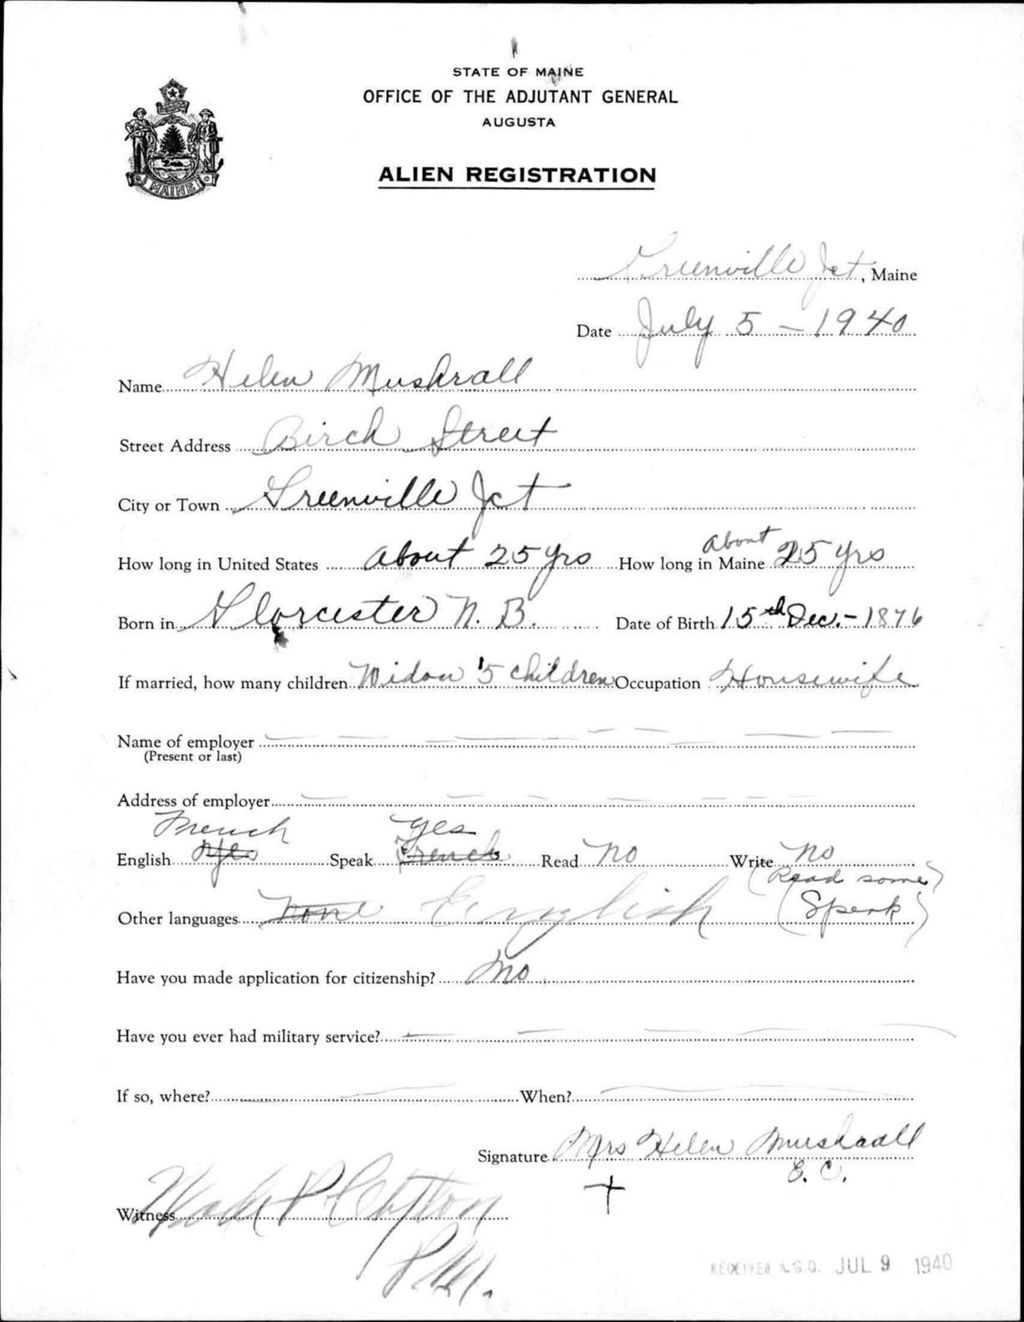 STATE OF MAINE
OFFICE OF THE ADJUTANT GENERAL
AUGUSTA
ALIEN REGISTRATION
MAINE
Greenville Jct, Maine
Date July 5 - 1940
Name Helen Mushrall
Street Address Birch Street
City or Town Greenville Jct
How long in United States About 25 yrs How long in Maine About 25 yrs
Born in Glorcester N. B. Date of Birth 15th Dec. - 1876
If married, how many children Widow 5 children Occupation Housewife
Name of employer
(Present or last)
Address of employer
French Yes
English Yes Speak French Read No Write No
(Read some)
Other languages None English (Speak)
Have you made application for citizenship? No
Have you ever had military service?
If so, where? When?
Signature Mrs Helen Mushrall
E. C.
Witness
P.M.
RECEIVED A.G.O. JUL 9 1940